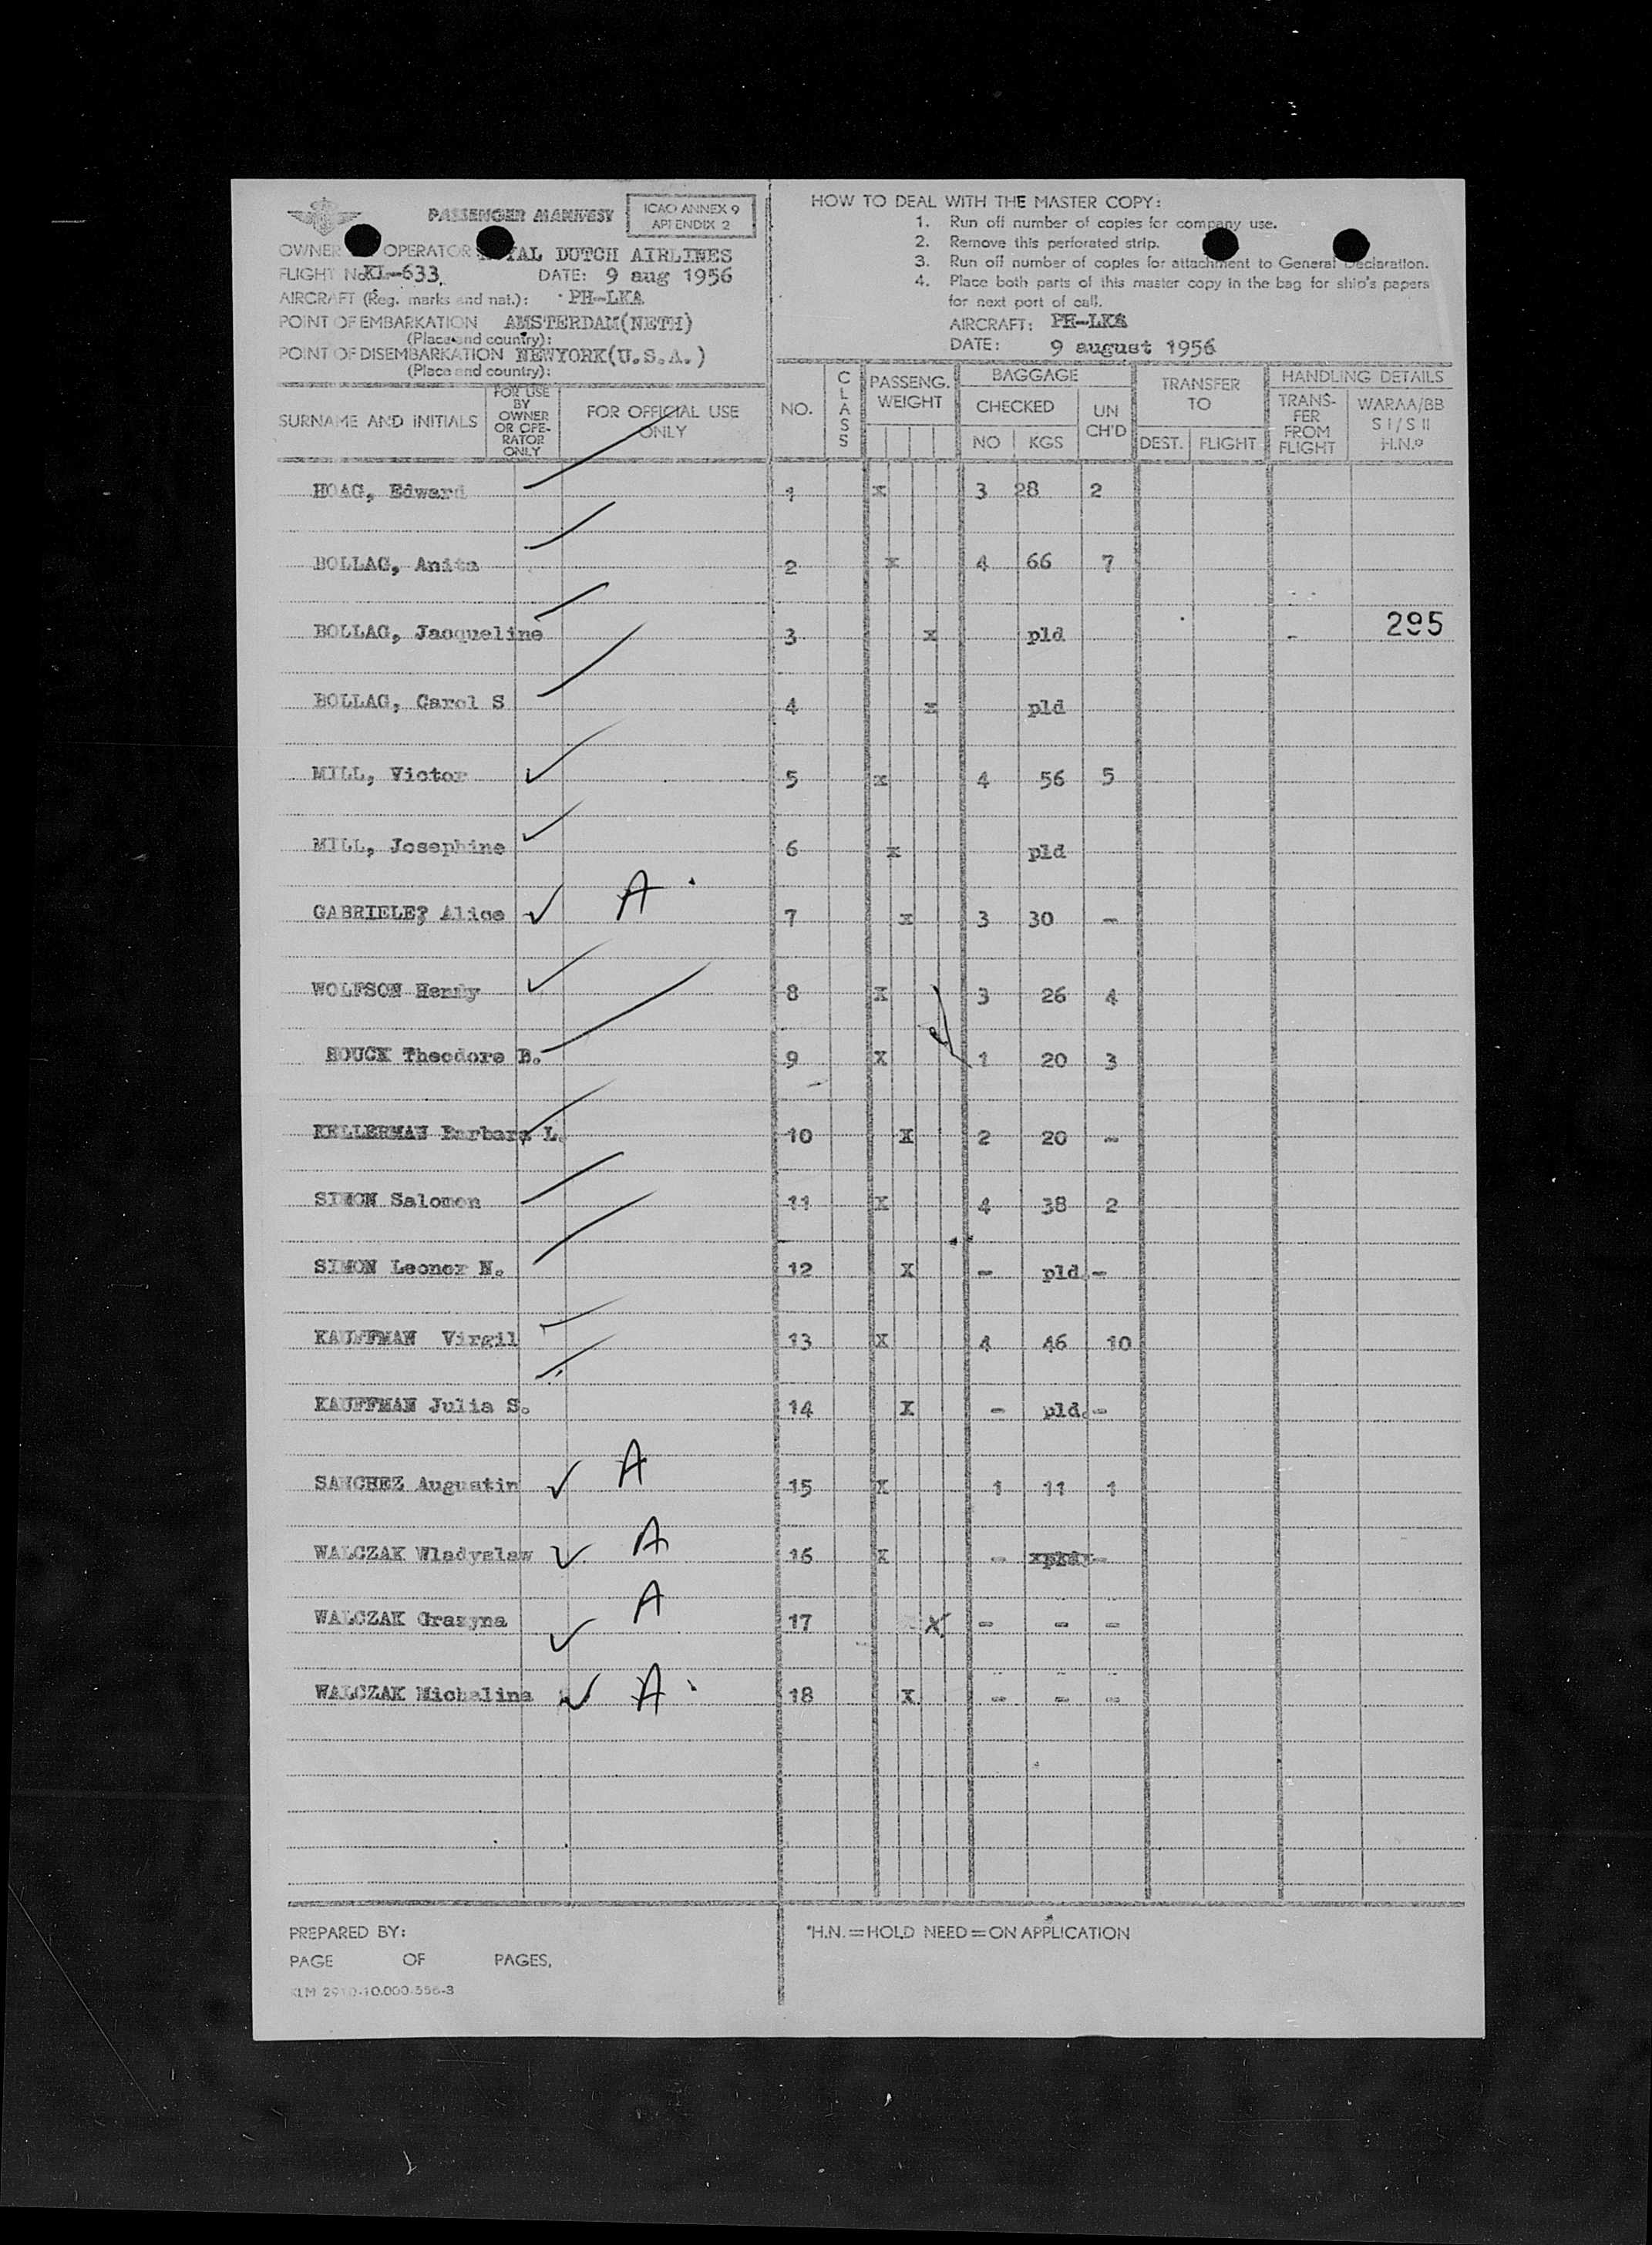 PASSENGER MANIFEST
ICAO ANNEX 9
APPENDIX 2
OWNER OPERATOR ROYAL DUTCH AIRLINES
FLIGHT No KL-633. DATE: 9 aug 1956
AIRCRAFT (Reg. marks and nat.): PH-LKA
POINT OF EMBARKATION AMSTERDAM(NETH)
(Place and country):
POINT OF DISEMBARKATION NEWYORK(U.S.A.)
(Place and country):
HOW TO DEAL WITH THE MASTER COPY:
1. Run off number of copies for company use.
2. Remove this perforated strip.
3. Run off number of copies for attachment to General Declaration.
4. Place both parts of this master copy in the bag for ship's papers
for next port of call.
AIRCRAFT: PH-LKA
DATE: 9 august 1956
SURNAME AND INITIALS
FOR USE
BY
OWNER
OR OPE-
RATOR
ONLY
FOR OFFICIAL USE
ONLY
NO.
CLASS
PASSENG.
WEIGHT
BAGGAGE
CHECKED
NO KGS
UN
CH'D
TRANSFER
TO
DEST. FLIGHT
HANDLING DETAILS
TRANS-
FER
FROM
FLIGHT
WARAA/BB
S I / S II
H.N.º
HOAG, Edward 1 x 3 28 2
BOLLAG, Anita 2 x 4 66 7
BOLLAG, Jacqueline 3 x pld 295
BOLLAG, Carol S 4 x pld
MILL, Victor 5 x 4 56 5
MILL, Josephine 6 x pld
GABRIELE? Alice A 7 x 3 30 -
WOLFSON Henry 8 X 3 26 4
HOUCK Theodore B. 9 X 1 20 3
KELLERMAN Barbara L. 10 X 2 20 -
SIMON Salomon 11 X 4 38 2
SIMON Leonor N. 12 X - pld. -
KAUFFMAN Virgil 13 X 4 46 10
KAUFFMAN Julia S. 14 X - pld. -
SANCHEZ Augustin A 15 X 1 11 1
WALCZAK Wladyslaw A 16 X - -
WALCZAK Grazyna A 17 X - - -
WALCZAK Michalina A 18 X - - -
PREPARED BY:
PAGE OF PAGES,
*H.N.=HOLD NEED=ON APPLICATION